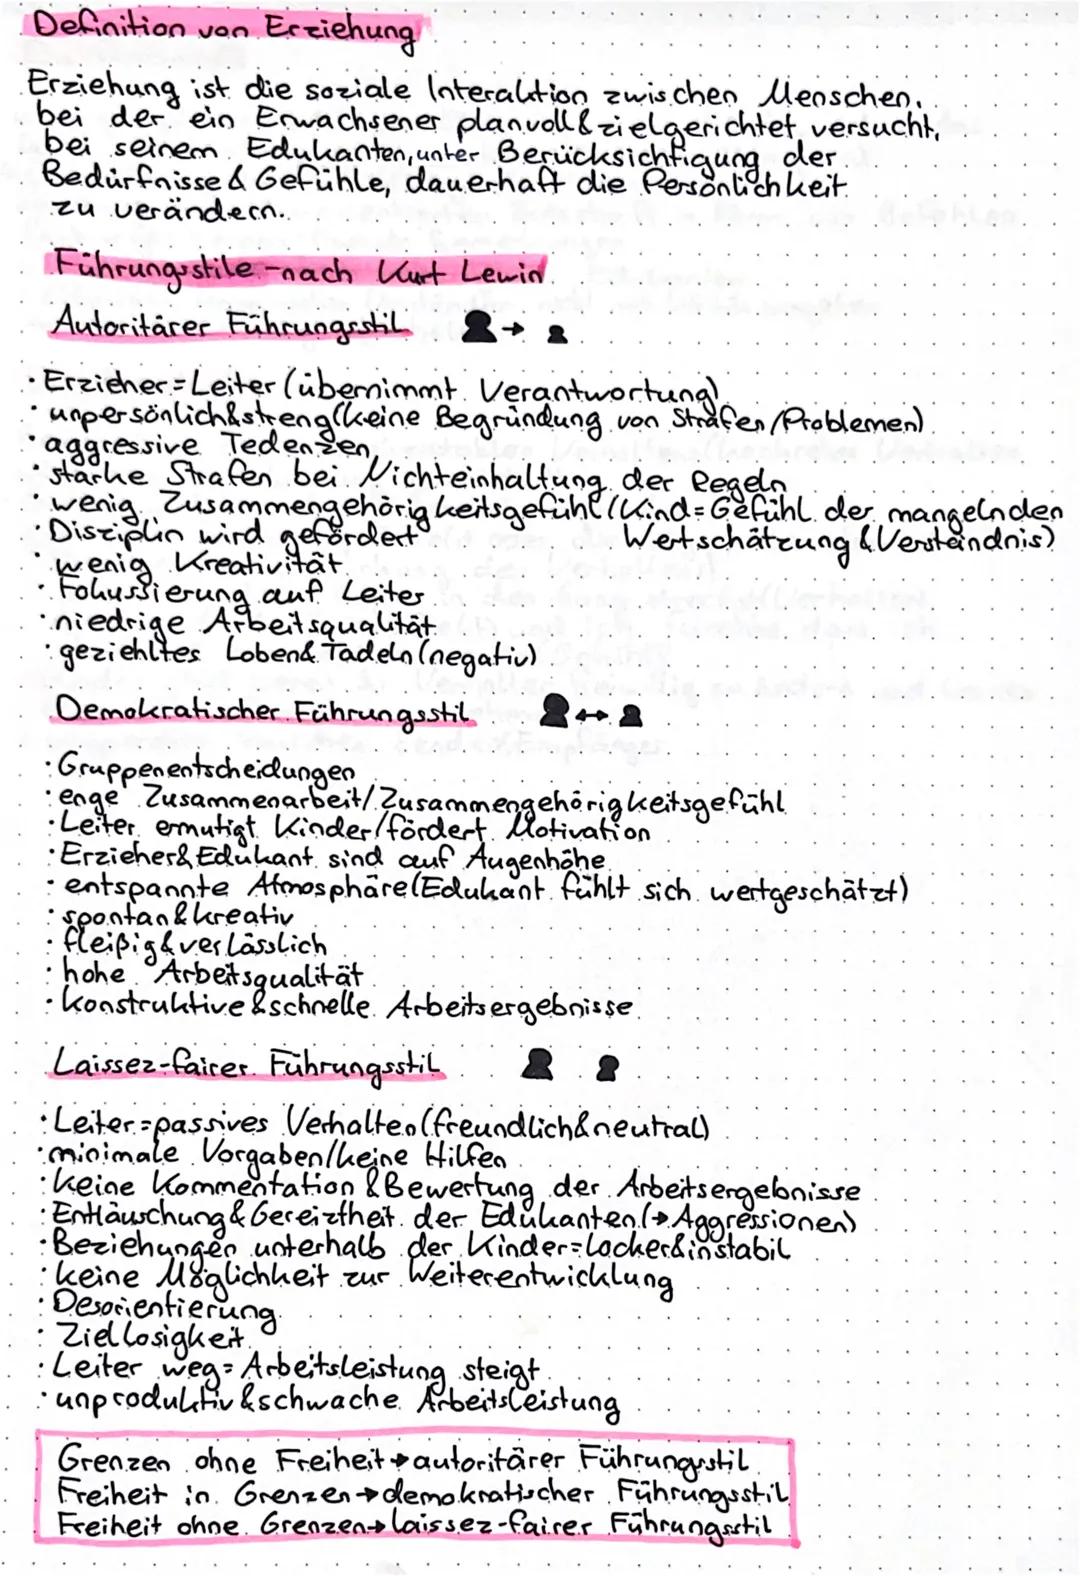 Definition von Erziehung
Erziehung ist die soziale Interaktion zwischen Menschen,
bei der ein Erwachsener planvoll & zielgerichtet versucht,
bei seinem Edukanten, unter Berücksichtigung der
Bedürfnisse & Gefühle, dauerhaft die Persönlichkeit
zu verändern.
Führungsstile - nach Kurt Lewin
Autoritärer Führungsstil →
· Erzieher = Leiter (übernimmt Verantwortung)
· unpersönlich & streng (keine Begründung von Strafen/Problemen)
· aggressive Tedenzen
· starke Strafen bei Nichteinhaltung der Regeln
· wenig Zusammengehörigkeitsgefühl (Kind = Gefühl der mangelnden
Wertschätzung & Verständnis)
· Disziplin wird gefördert
· wenig Kreativität
· Fokussierung auf Leiter
· niedrige Arbeitsqualität
· geziehltes Loben & Tadeln (negativ)
Demokratischer Führungsstil ↔
· Gruppenentscheidungen
· enge Zusammenarbeit/Zusammengehörigkeitsgefühl
· Leiter ermutigt Kinder/fördert Motivation
· Erzieher & Edukant sind auf Augenhöhe
· entspannte Atmosphäre (Edukant fühlt sich wertgeschätzt)
· spontan & kreativ
· fleißig & verlässlich
· hohe Arbeitsqualität
· konstruktive & schnelle Arbeitsergebnisse
Laissez-fairer Führungsstil
· Leiter = passives Verhalten (freundlich & neutral)
· minimale Vorgaben/keine Hilfen
· keine Kommentation & Bewertung der Arbeitsergebnisse
· Enttäuschung & Gereiztheit der Edukanten (→ Aggressionen)
· Beziehungen unterhalb der Kinder = locker & instabil
· keine Möglichkeit zur Weiterentwicklung
· Desorientierung
· Ziellosigkeit
· Leiter weg = Arbeitsleistung steigt
· unproduktiv & schwache Arbeitsleistung
Grenzen ohne Freiheit → autoritärer Führungsstil
Freiheit in Grenzen → demokratischer Führungsstil
Freiheit ohne Grenzen → laissez-fairer Führungsstil